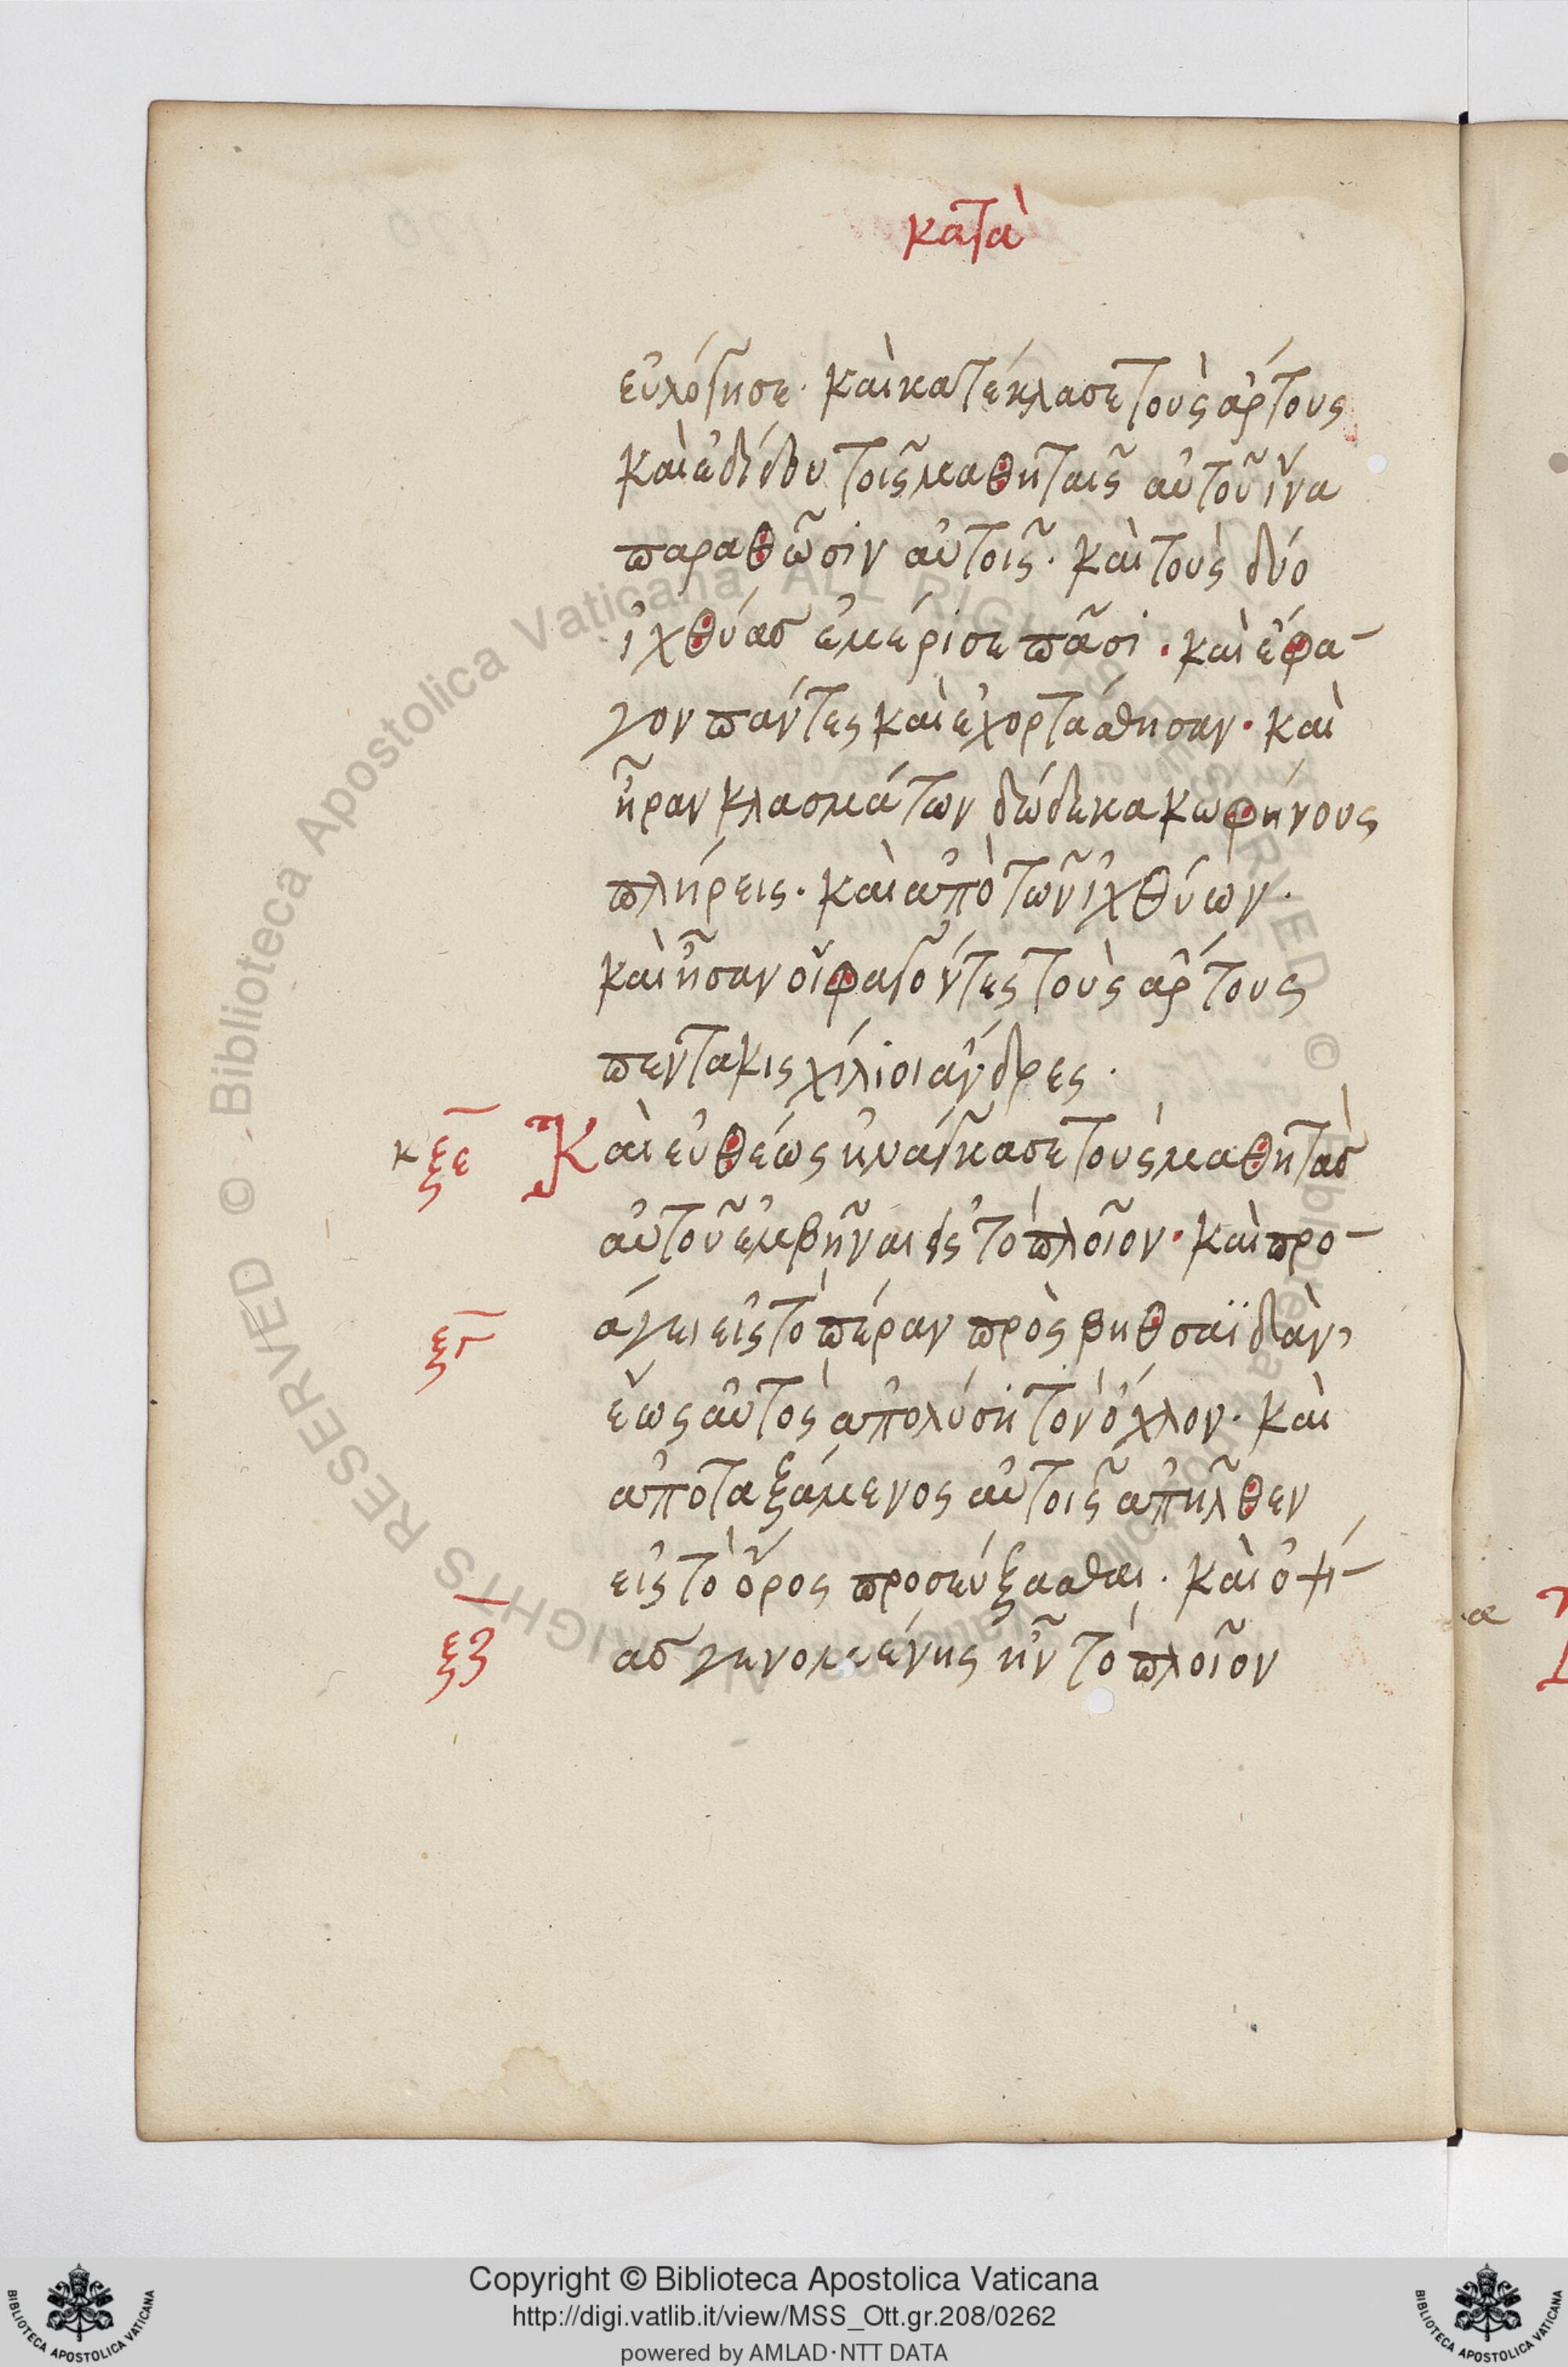 κατὰ
εὐλόγησε· καὶ κατέκλασε τοὺς ἄρτους
καὶ ἐδίδου τοῖς μαθηταῖς αὐτοῦ ἵνα
παραθῶσιν αὐτοῖς· καὶ τοὺς δύο
ἰχθύας ἐμέρισε πᾶσι· καὶ ἔφα-
γον πάντες καὶ ἐχορτάσθησαν· καὶ
ἦραν κλασμάτων δώδεκα κωφήνους
πλήρεις· καὶ ἀπὸ τῶν ἰχθύων·
καὶ ἦσαν οἱ φαγόντες τοὺς ἄρτους
πεντακισχίλιοι ἄνδρες·
κ ξε Καὶ εὐθέως ἠνάγκασε τοὺς μαθητὰς
αὐτοῦ ἐμβῆναι εἰς τὸ πλοῖον· καὶ προ-
ξϛ άγει εἰς τὸ πέραν πρὸς βηθσαϊδὰν,
ἕως αὐτὸς ἀπολύση τὸν ὄχλον· καὶ
ἀποταξάμενος αὐτοῖς ἀπῆλθεν
εἰς τὸ ὄρος προσεύξασθαι· καὶ ὀψί-
ξζ ας γενομένης ἦν τὸ πλοῖον
© Biblioteca Apostolica Vaticana ALL RIGHTS RESERVED © Biblioteca Apostolica Vaticana ALL RIGHTS RESERVED
Copyright © Biblioteca Apostolica Vaticana
http://digi.vatlib.it/view/MSS_Ott.gr.208/0262
powered by AMLAD·NTT DATA
BIBLIOTECA APOSTOLICA VATICANA
BIBLIOTECA APOSTOLICA VATICANA